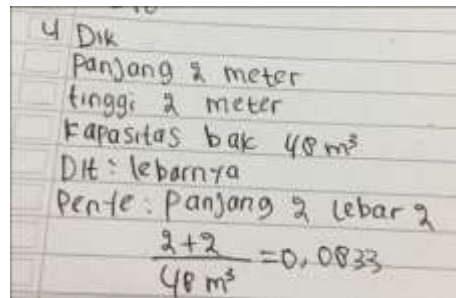 4 Dik
Panjang 2 meter
tinggi 2 meter
Kapasitas bak 48 m³
Dit : lebarnya
Penye : Panjang 2 lebar 2
2+2
48 m³ = 0,0833